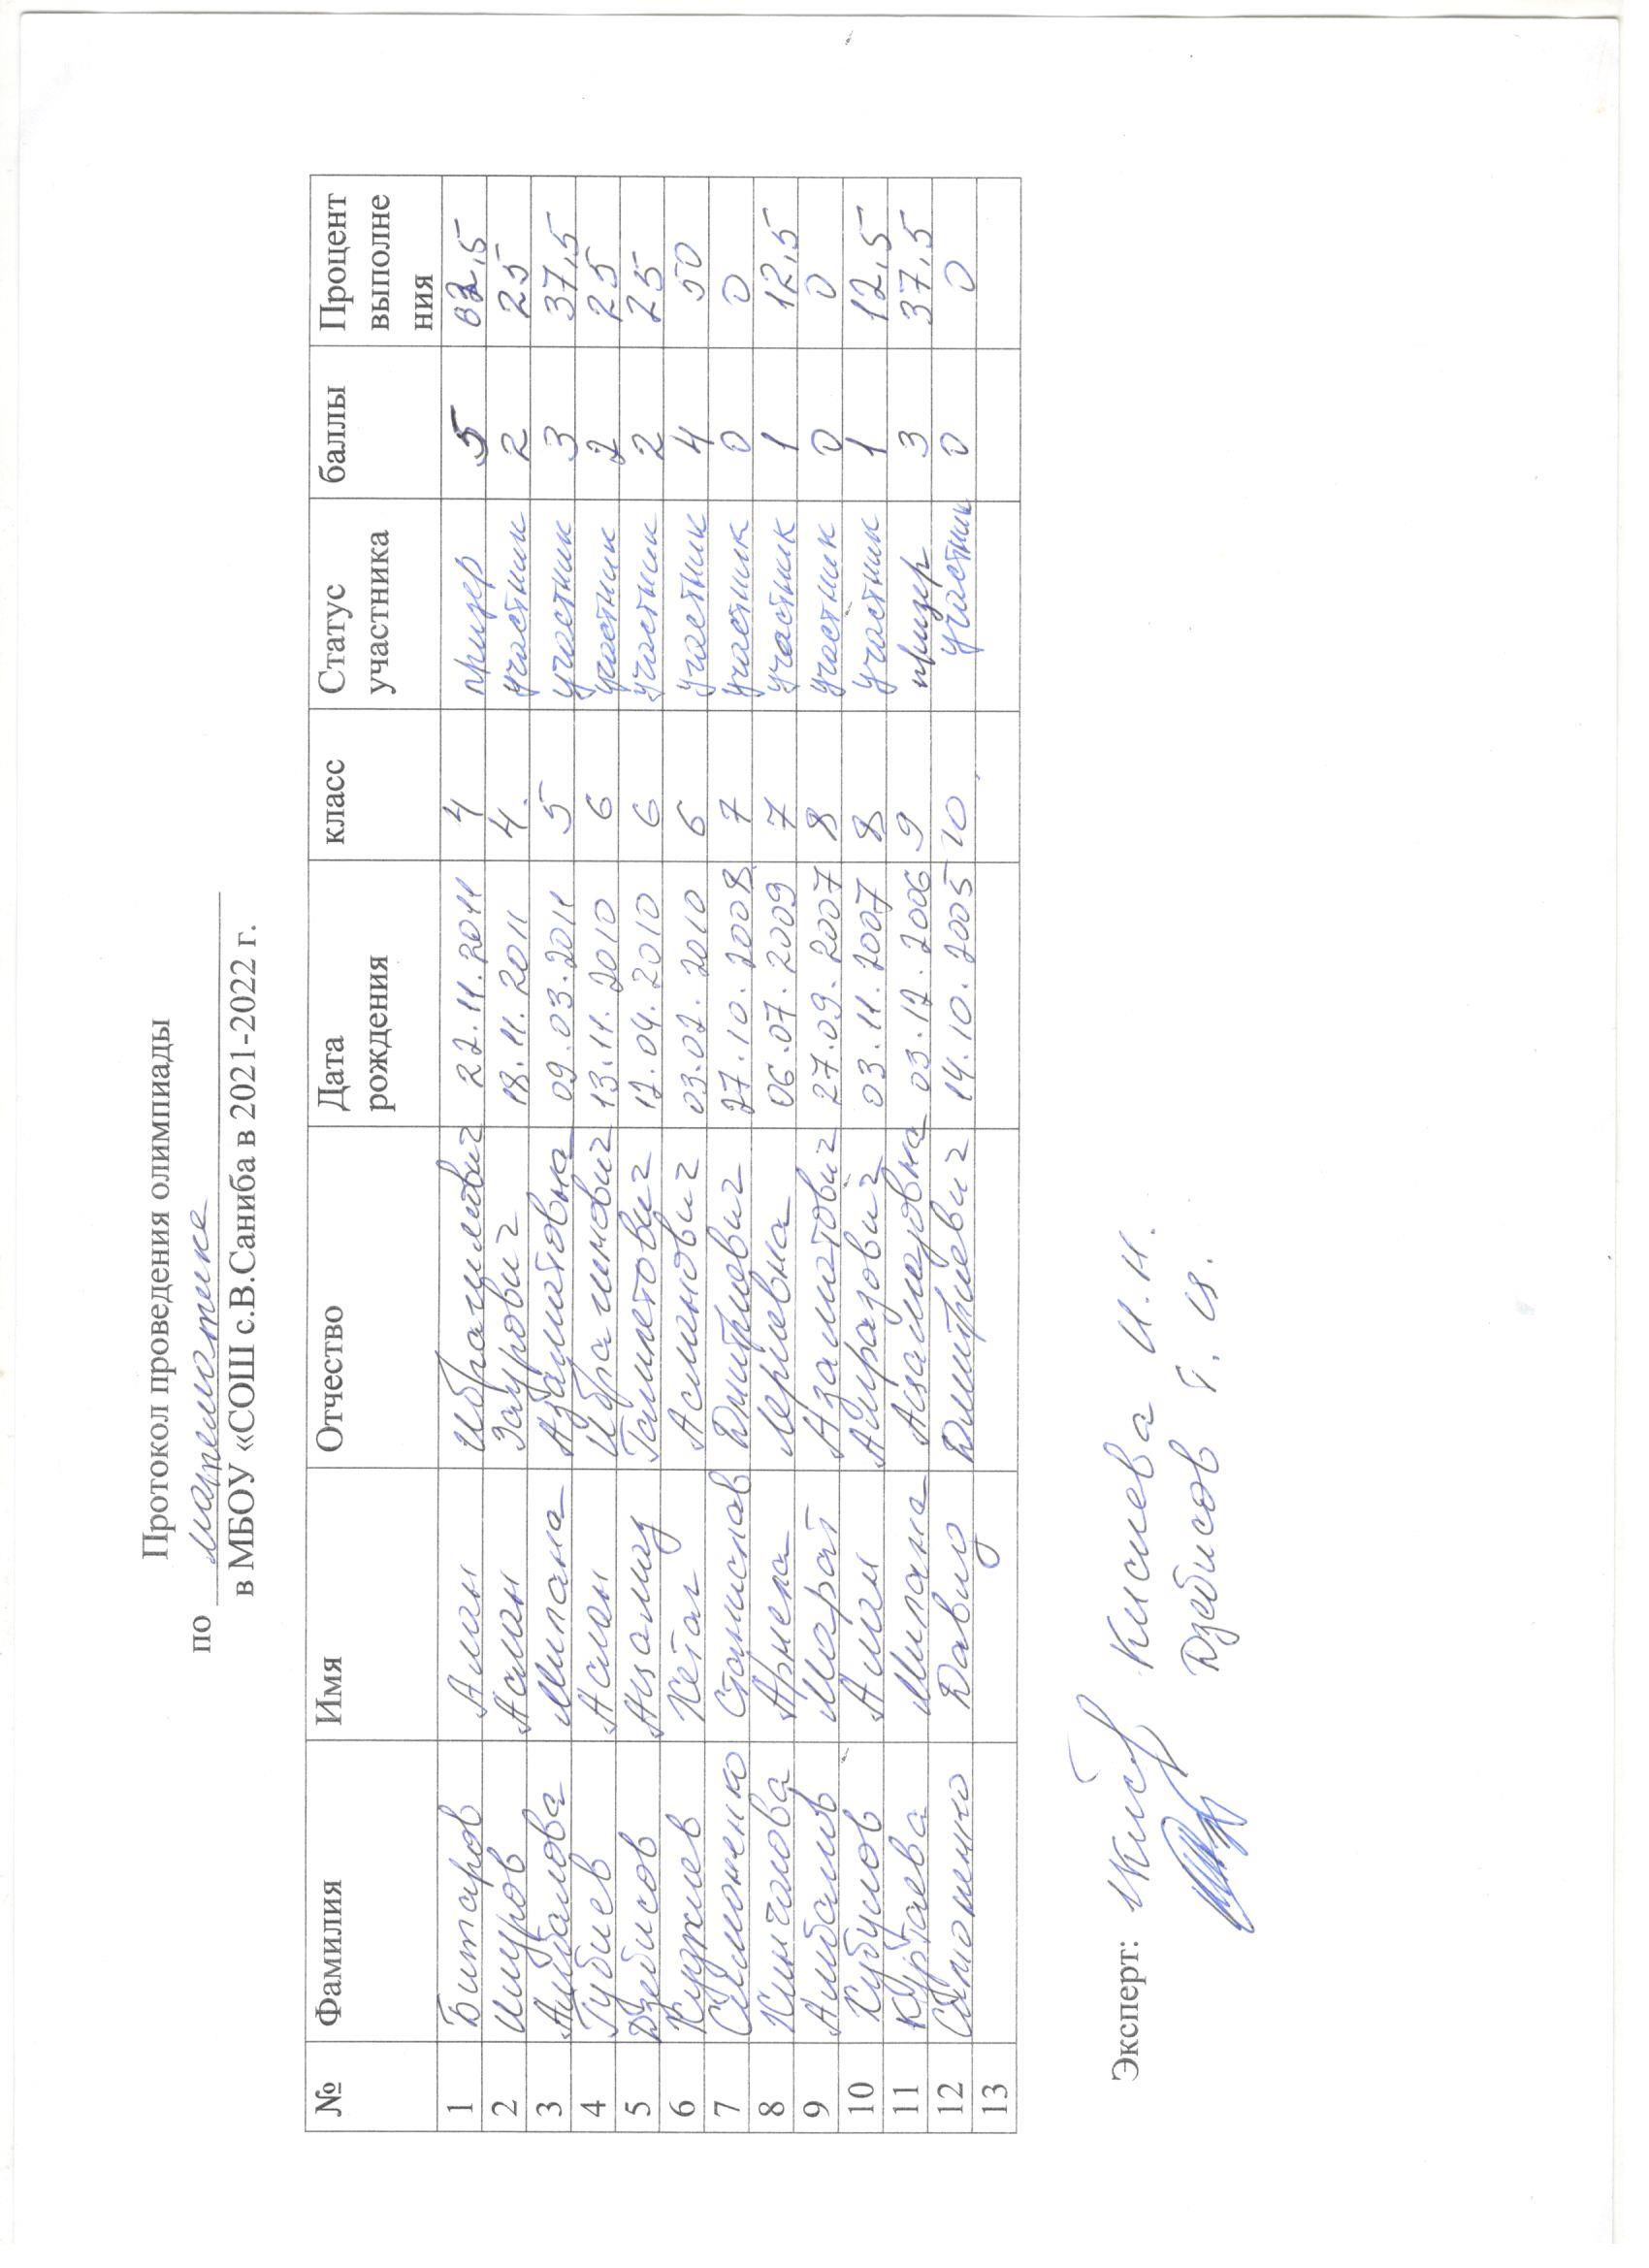 Протокол проведения олимпиады
по математике
в МБОУ «СОШ с.В.Саниба в 2021-2022 г.
№ Фамилия Имя Отчество Дата рождения класс Статус участника баллы Процент выполне ния
1 Битаров Алан Ибрагимович 22.11.2011 4 призер 5 62,5
2 Шуров Аслан Заурович 18.11.2011 4. участник 2 25
3 Амбалова Милана Азаматовна 09.03.2011 5 участник 3 37,5
4 Губиев Аслан Ибрагимович 13.11.2010 6 участник 2 25
5 Дзебисов Тайметович 12.04.2010 6 участник 2 25
6 Хетаг Асланович 03.02.2010 6 участник 4 50
7 Симоненко Станислав Дмитриевич 27.10.2008 7 участник 0 0
8 Арнела Лериевна 06.07.2009 7 участник 1 12,5
9 Амбалов Марат Азаматович 27.09.2007 8 участник 0 0
10 Хубулов Алан Амиразович 03.11.2007 8 участник 1 12,5
11 Куртаева Милана 03.12.2006 9 призер 3 37,5
12 Симоненко Давид Дмитриевич 14.10.2005 10 участник 0 0
13
Эксперт: Кисиева И.Н.
Дзебисов Т.И.